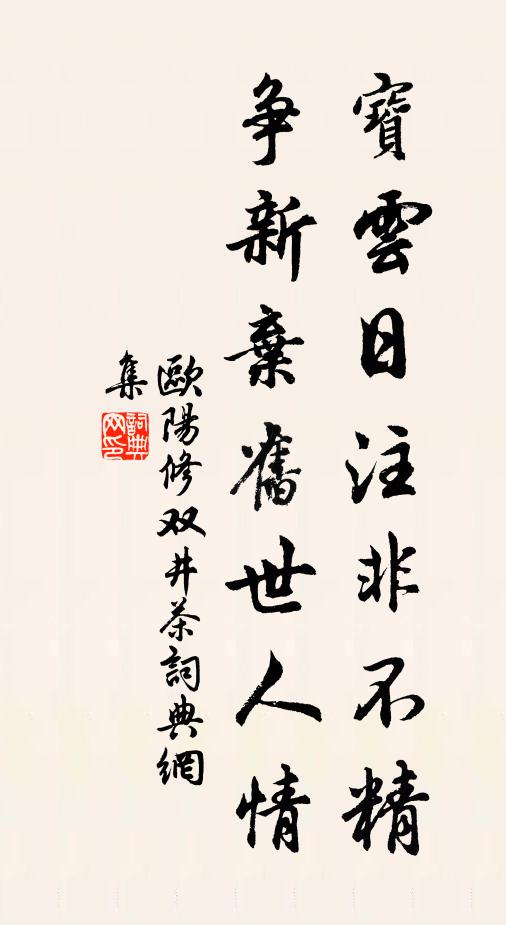 寶雲日注非不精
争新棄舊世人情
歐陽修双井茶詞典網
集
詞典网印